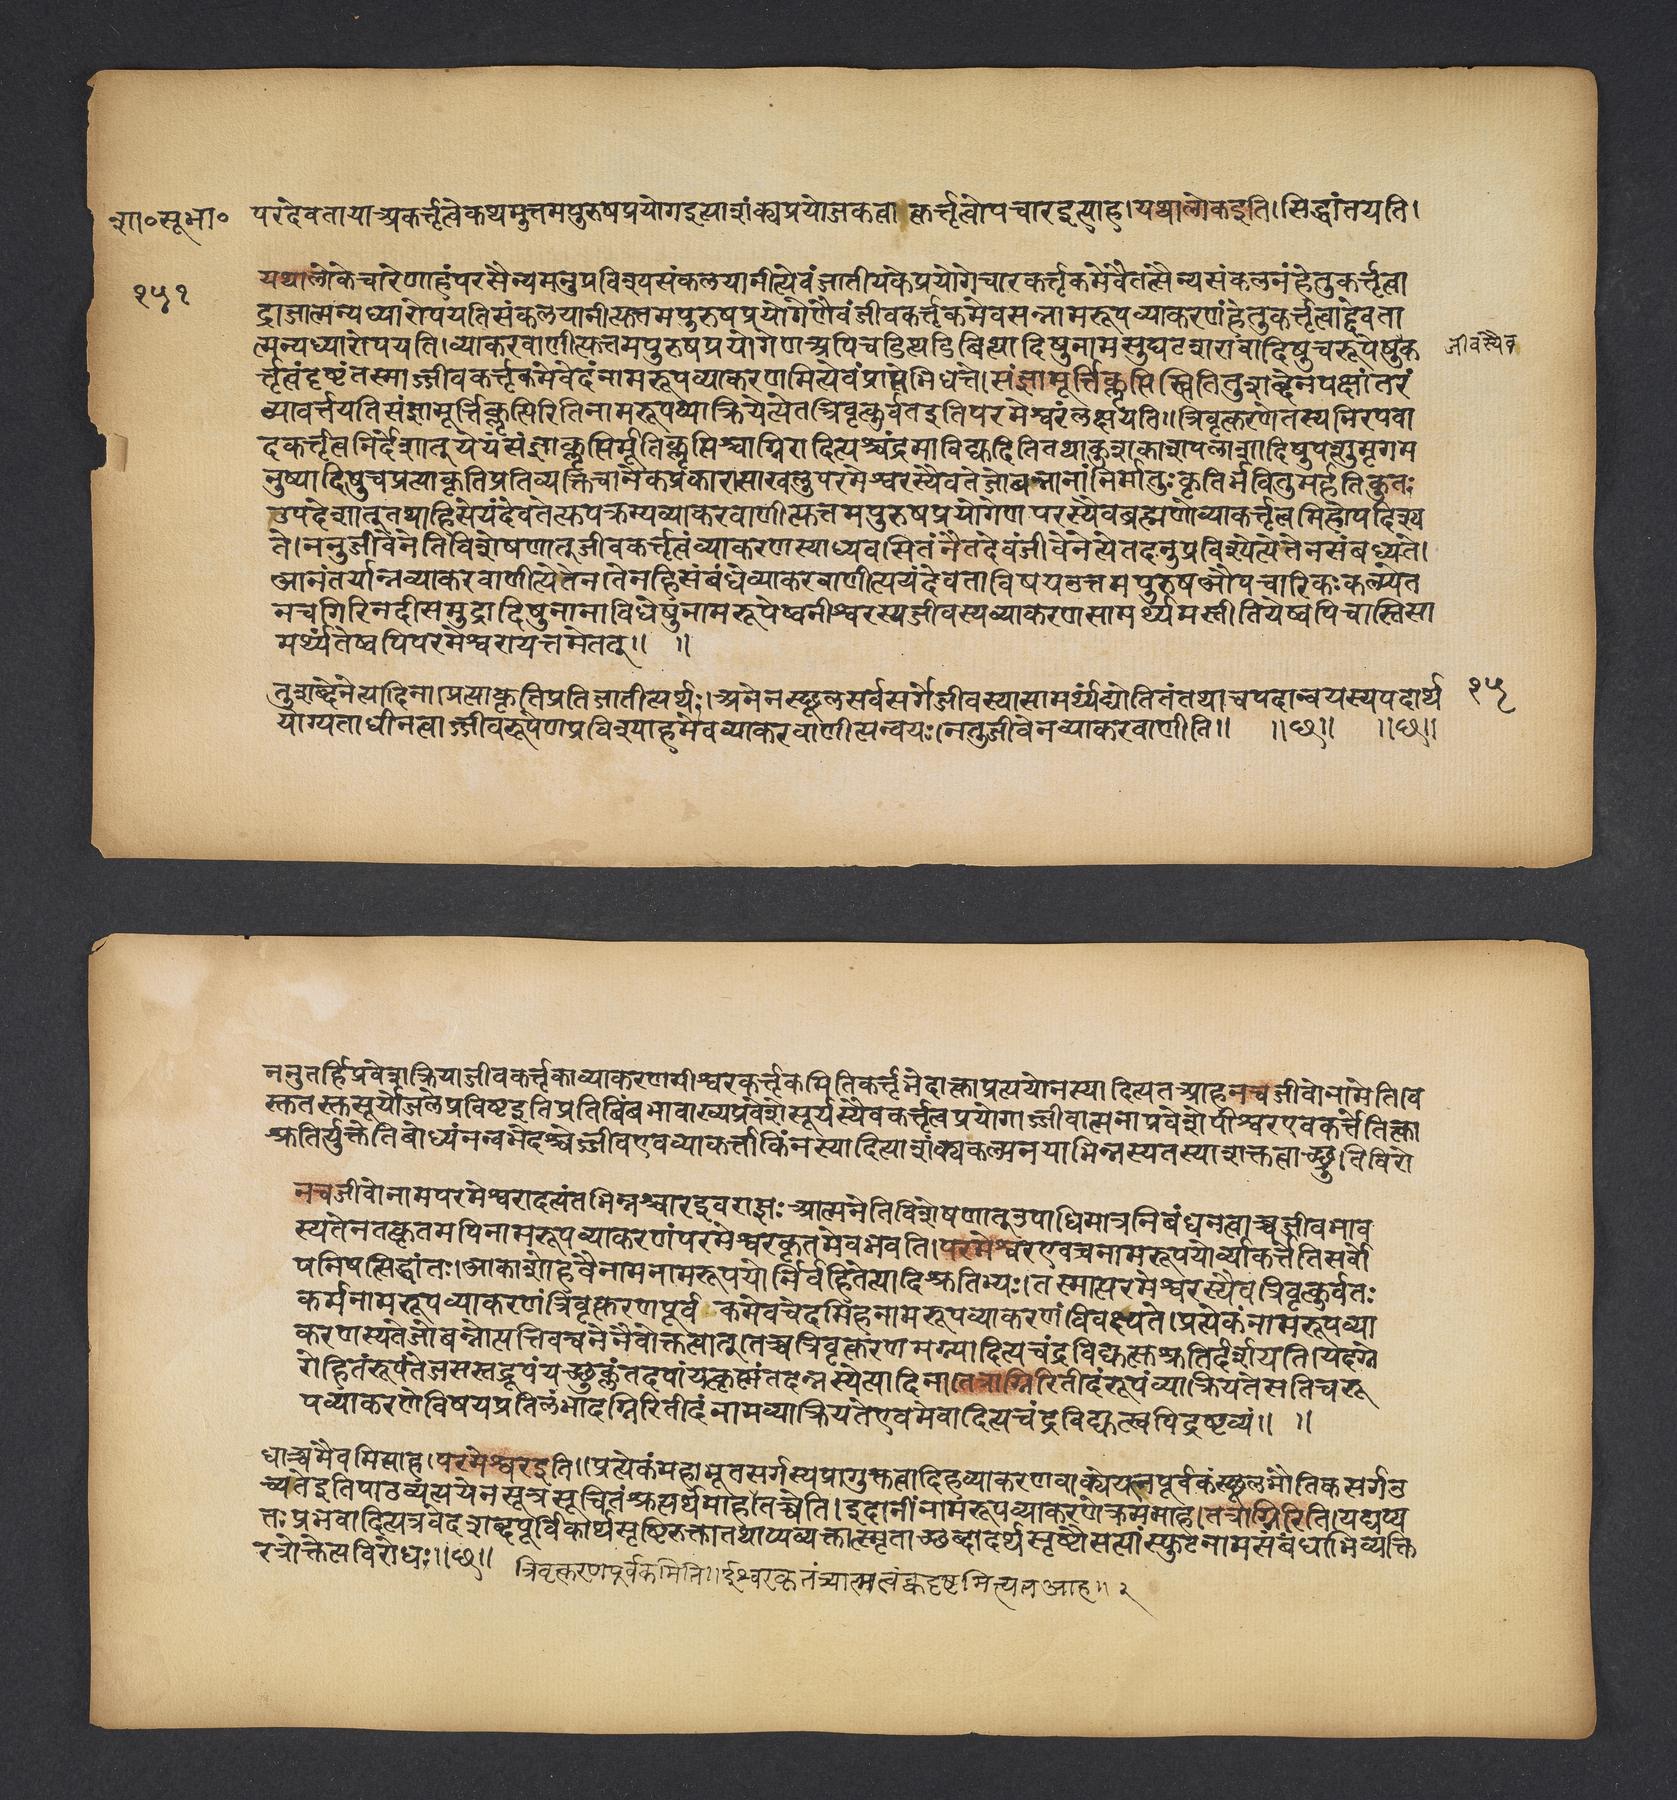 शा॰सूभा॰
परंदेवतायाअकर्त्तृत्वेकथमुत्तमपुरुषप्रयोगइत्याशंक्यप्रयोजकत्वात्कर्त्तृत्वोपचारइत्याह।यथालोकइति।सिद्धांतयति।
१५१
यथालोकेचारेणाहंपरसैन्यमनुप्रविश्यसंकलयानीत्येवंजातीयकेप्रयोगेचारकर्त्तृकमेवैतत्सैन्यसंकलनंहेतुकर्त्तृत्वा
द्राजात्मन्यध्यारोपयतिसंकलयानीत्युत्तमपुरुषप्रयोगेणैवंजीवकर्त्तृकमेवसन्नामरूपव्याकरणंहेतुकर्त्तृत्वाद्देवता
त्मन्यध्यारोपयति।व्याकरवाणीत्युत्तमपुरुषप्रयोगेणअपिचडित्थडवित्थादिषुनामसुघटशरावादिषुचरूपेषुक
जीवस्यैव
र्त्तृत्वंदृष्टंतस्माज्जीवकर्त्तृकमेवेदंनामरूपव्याकरणमित्येवंप्राप्तेभिधत्ते।संज्ञामूर्त्तिक्लृप्तिस्त्वितितुशब्देनपक्षांतरं
व्यावर्त्तयतिसंज्ञामूर्त्तिक्लृप्तिरितिनामरूपव्याक्रियेत्येतत्त्रिवृत्कुर्वतइतिपरमेश्वरंलक्षयति॥त्रिवृत्करणेतस्यनिरपवा
दकर्त्तृत्वनिर्देशात्येयंसंज्ञाक्लृप्तिर्मूर्तिक्लृप्तिश्चाग्निरादित्यश्चंद्रमाविद्युदितितथाकुशकाशपलाशादिषुपशुमृगम
नुष्यादिषुचप्रत्याकृतिप्रतिव्यक्तिचानेकप्रकारासाखलुपरमेश्वरस्यैवतेजोबन्नानांनिर्मातुःकृतिर्भवितुमर्हतिकुतः
उपदेशात्तथाहिसेयंदेवतेत्युपक्रम्यव्याकरवाणीत्युत्तमपुरुषप्रयोगेणपरस्यैवब्रह्मणोव्याकर्त्तृत्वमिहोपदिश्य
ते।ननुजीवेनेतिविशेषणात्जीवकर्त्तृत्वंव्याकरणस्याध्यवसितंनैतदेवंजीवेनेत्येतदनुप्रविश्येत्येतेनसंबध्यते।
आनंतर्यान्नव्याकरवाणीत्येतेन।तेनहिसंबंधेव्याकरवाणीत्ययंदेवताविषयउत्तमपुरुषऔपचारिकःकल्प्येत
नचगिरिनदीसमुद्रादिषुनानाविधेषुनामरूपेष्वनीश्वरस्यजीवस्यव्याकरणसामर्थ्यमस्तीतियेष्वपिचास्तिसा
मर्थ्यंतेष्वपिपरमेश्वरायत्तमेवतत्॥ ॥
तुशब्देनेत्यादिना।प्रत्याकृतिप्रतिजातीत्यर्थः।अनेनस्थूलसर्वसर्गेजीवस्यासामर्थ्यंद्योतितंतथाचपदान्वयस्यपदार्थ
१५१
योग्यताधीनत्वाज्जीवरूपेणप्रविश्याहमेवव्याकरवाणीत्यन्वयः।नतुजीवेनव्याकरवाणीति॥ ॥छ॥ ॥छ॥
ननुतर्हिप्रवेशक्रियाजीवकर्त्तृकाव्याकरणमीश्वरकर्त्तृकमितिकर्त्तृभेदात्क्त्वाप्रत्ययोनस्यादित्यतआहनचजीवोनामेति।व
स्तुतस्तुसूर्योजलेप्रविष्टइतिप्रतिबिंबभावाख्यप्रवेशेसूर्यस्यैवकर्त्तृत्वप्रयोगाज्जीवात्मनाप्रवेशेपीश्वरएवकर्त्तेतित्क्वा
श्रुतिर्युक्तेतिबोध्यंनन्वभेदश्चेज्जीवएवव्याकर्त्ताकिंनस्यादित्याशंक्यकल्पनयाभिन्नस्यतस्याशक्तत्वाच्छ्रुतिविरो
नचजीवोनामपरमेश्वरादत्यंतभिन्नश्चारइवराज्ञःआत्मनेतिविशेषणात्उपाधिमात्रनिबंधनत्वाच्चजीवभाव
स्यतेनतत्कृतमपिनामरूपव्याकरणंपरमेश्वरकृतमेवभवति।परमेश्वरएवचनामरूपयोर्व्याकर्त्तेतिसर्वो
पनिषत्सिद्धांतः।आकाशोहवैनामनामरूपयोर्निर्वहितेत्यादिश्रुतिभ्यः।तस्मात्परमेश्वरस्यैवत्रिवृत्कुर्वतः
कर्मनामरूपव्याकरणंत्रिवृत्करणपूर्वकमेवचेदमिहनामरूपव्याकरणंविवक्ष्यते।प्रत्येकंनामरूपव्या
करणस्यतेजोबन्नोत्पत्तिवचनेनैवोक्तत्वात्।तच्चत्रिवृत्करणमग्न्यादित्यचंद्रविद्युत्सुश्रुतिर्दर्शयति।यदग्ने
रोहितंरूपंतेजसस्तद्रूपंयच्छुक्लंतदपांयत्कृष्णंतदन्नस्येत्यादिना।तत्राग्निरितीदंरूपंव्याक्रियतेसतिचरू
पव्याकरणेविषयप्रतिलंभादग्निरितीदंनामव्याक्रियतेएवमेवादित्यचंद्रविद्युत्स्वपिद्रष्टव्यं॥ ॥
धाच्चमैवमित्याह।परमेश्वरइति॥प्रत्येकंमहाभूतसर्गस्यप्रागुक्तत्वादिहव्याकरणवाक्येयत्नपूर्वकंस्थूलभौतिकसर्गउ
च्यतेइतिपाठव्यत्ययेनसूत्रसूचितंश्रुत्यर्थमाह।तच्चेति।इदानींनामरूपव्याकरणेक्रममाह।तत्राग्निरिति।यद्यप्य
तःप्रभवादित्यत्रवेदशब्दपूर्विकार्थसृष्टिरुक्तातथाप्यव्यक्तात्स्मृताच्छब्दादर्थसृष्टौसत्यांस्फुटनामसंबंधाभिव्यक्ति
रत्रोक्तेत्यविरोधः॥छ॥
त्रिवृत्करणपूर्वकमिति॥ईश्वरकृतं